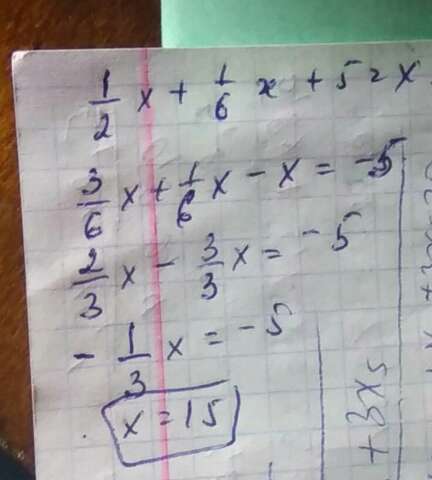 1/2 x + 1/6 x + 5 = x
3/6 x + 1/6 x - x = -5
2/3 x - 3/3 x = -5
- 1/3 x = -5
x = 15
+3x5